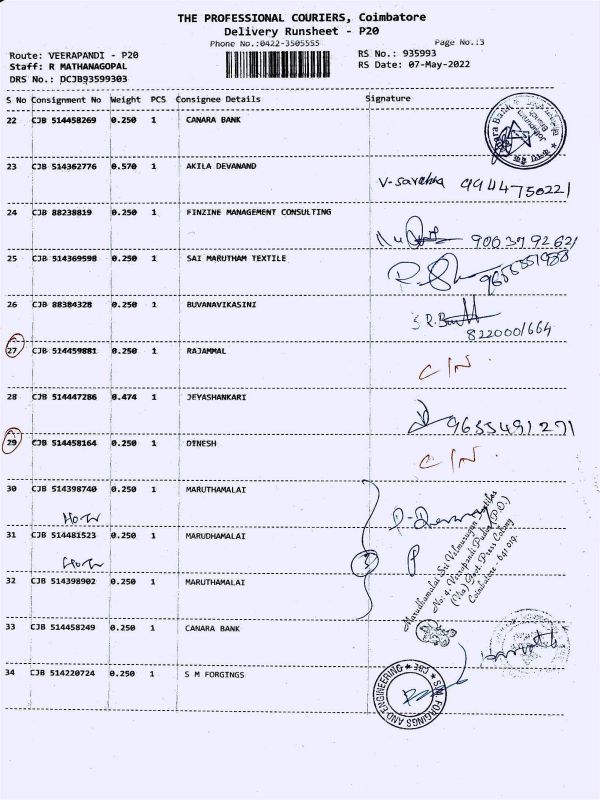 THE PROFESSIONAL COURIERS, Coimbatore
Delivery Runsheet - P20
Phone No.:0422-3505555 Page No.:3
Route: VEERAPANDI - P20 RS No.: 935993
Staff: R MATHANAGOPAL RS Date: 07-May-2022
DRS No.: DCJB93599303
S No Consignment No Weight PCS Consignee Details Signature
22 CJB 514458269 0.250 1 CANARA BANK
23 CJB 514362776 0.570 1 AKILA DEVANAND
9944750221
24 CJB 88238819 0.250 1 FINZINE MANAGEMENT CONSULTING
25 CJB 514369598 0.250 1 SAI MARUTHAM TEXTILE
26 CJB 88384328 0.250 1 BUVANAVIKASINI
27 CJB 514459881 0.250 1 RAJAMMAL
C/N.
28 CJB 514447286 0.474 1 JEYASHANKARI
9655491271
29 CJB 514458164 0.250 1 DINESH
C/N.
30 CJB 514398740 0.250 1 MARUTHAMALAI
31 CJB 514481523 0.250 1 MARUDHAMALAI
32 CJB 514398902 0.250 1 MARUTHAMALAI
3
Marudhamalai Sri Velmurugan Textiles
No: 4, Veerapandi Pudur (P.O.)
(Via) Govt. Press Colony
Coimbatore - 641 019.
33 CJB 514458249 0.250 1 CANARA BANK
34 CJB 514220724 0.250 1 S M FORGINGS
S.M. FORGINGS AND ENGINEERING CBE